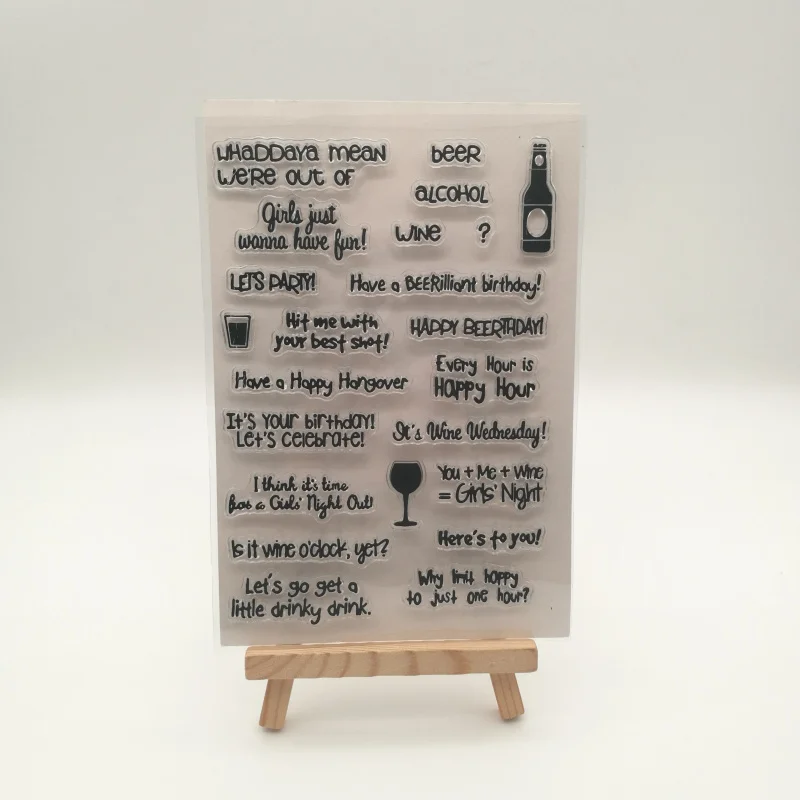 WHADDAYA MEAN
WE'RE OUT OF
BEER
ALCOHOL
WINE ?
Girls just
wanna have fun!
LET'S PARTY!
Have a BEERilliant birthday!
Hit me with
your best shot!
HAPPY BEERTHDAY!
Have a Happy Hangover
Every Hour is
Happy Hour
It's your birthday!
Let's celebrate!
It's Wine Wednesday!
I think it's time
for a Girls' Night Out!
You + Me + Wine
= Girls' Night
Is it wine o'clock, yet?
Here's to you!
Let's go get a
little drinky drink.
Why limit happy
to just one hour?